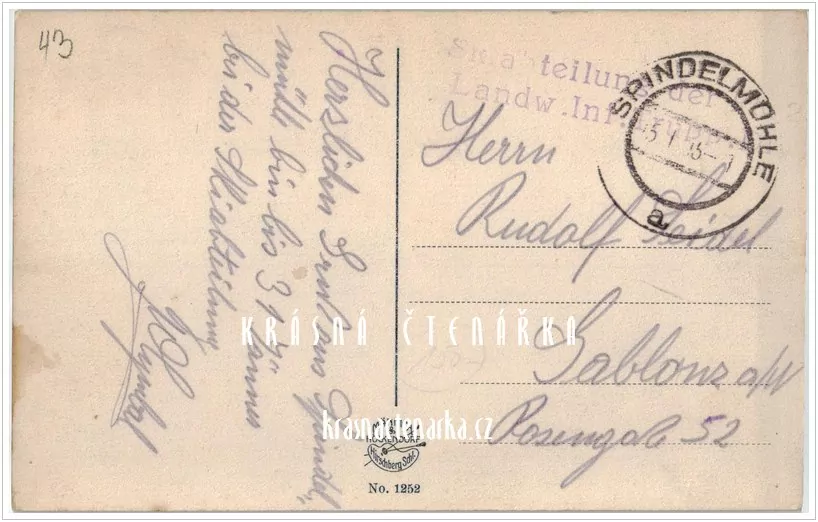 43
Herzlichen Gruß aus Spindel-
mühle bin bis 31 Jänner
bei der Skiabteilung
Skiabteilung der
Landw. Inf. Trupp.
SPINDELMÜHLE
a
Herrn
Rudolf Seidel
Gablonz a/N
Rosengasse 52
KRÁSNÁ ČTENÁŘKA
krasnactenarka.cz
Hirschberg Schl.
No. 1252